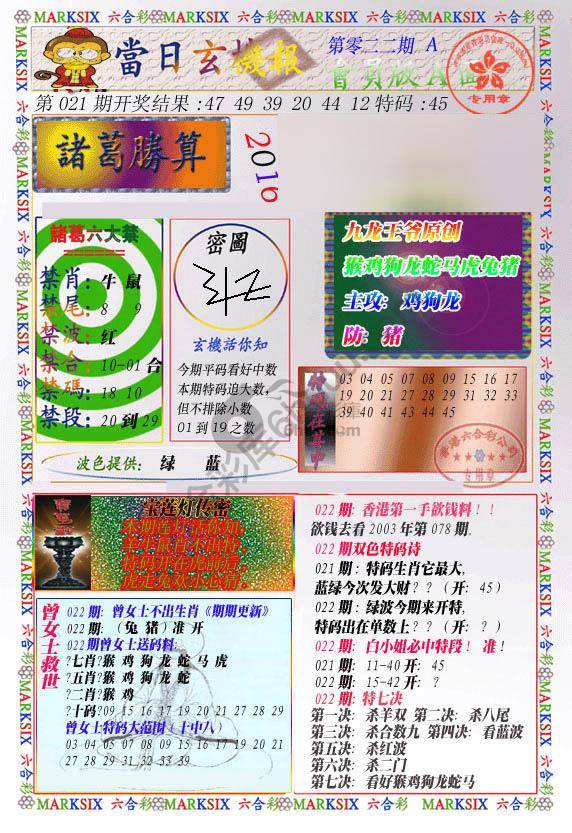 MARKSIX 六合彩 MARKSIX 六合彩 MARKSIX 六合彩 MARKSIX 六合彩
當日玄機報
第零二二期 A
會員版A面
专用章
第021期开奖结果:47 49 39 20 44 12特码:45
諸葛勝算
2016
諸葛六大禁
禁肖: 牛 鼠
禁尾: 8 9
禁波: 红
禁合: 10-01 合
禁碼: 18 10
禁段: 20 到 29
密圖
玄機活你知
今期平码看好中数
本期特码追大数,
但不排除小数
01到19之数
九龙王爷原创
猴鸡狗龙蛇马虎兔猪
主攻: 鸡狗龙
防: 猪
特碼在其中
03 04 05 07 08 09 15 16 17
19 20 21 27 28 29 31 32 33
39 40 41 43 44 45
香港六合彩公司
专用章
波色提供: 绿 蓝
宝莲灯传密
022 期: 香港第一手欲钱料!!
欲钱去看 2003 年第 078 期.
022期双色特码诗
021 期:特码生肖它最大,
蓝绿今次发大财? ?(开: 45)
022 期:绿波今期来开特,
特码出在单数上? ?(开: ?)
022 期: 白小姐必中特段! 准!
021 期: 11-40 开: 45
022 期: 15-42 开: ?
022 期: 特七决
第一决: 杀羊双 第二决: 杀八尾
第三决: 杀合数九 第四决: 看蓝波
第五决: 杀红波
第六决: 杀二门
第七决: 看好猴鸡狗龙蛇马
曾女士救世
022 期: 曾女士不出生肖《期期更新》
022 期: (兔 猪)准 开
022期曾女士送码料:
?七肖?猴 鸡 狗 龙 蛇 马 虎
?五肖?猴 鸡 狗 龙 蛇
?二肖?猴 鸡
?十码?09 15 16 17 19 20 21 27 28 29
曾女士特码大范围(十中八)
03 04 05 07 08 09 15 16 17 19 20 21
27 28 29 31 32 33 39
MARKSIX 六合彩 MARKSIX 六合彩 MARKSIX 六合彩 MARKSIX 六合彩